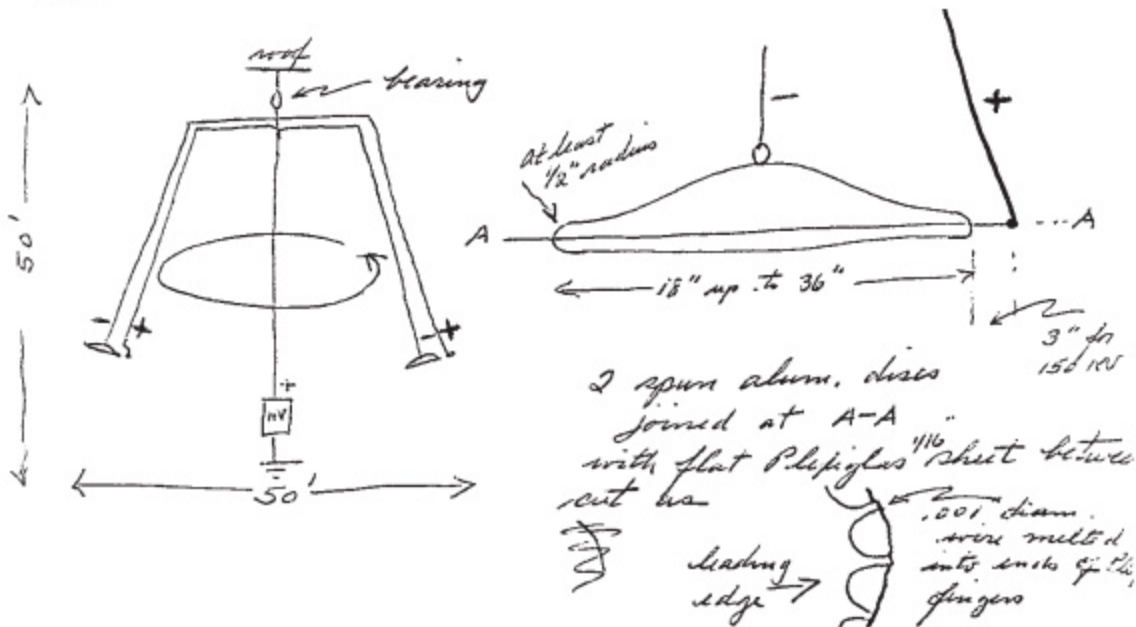 roof
bearing
50'
- +
- +
+
HV
50'
-
+
at least
1/2" radius
A
A
18" up to 36"
3" for
150 KV
2 spun alum. discs
joined at A-A
with flat Plexiglas 1/16" sheet betwee
cut as
leading
edge
.001" diam.
wire melted
into ends of
fingers